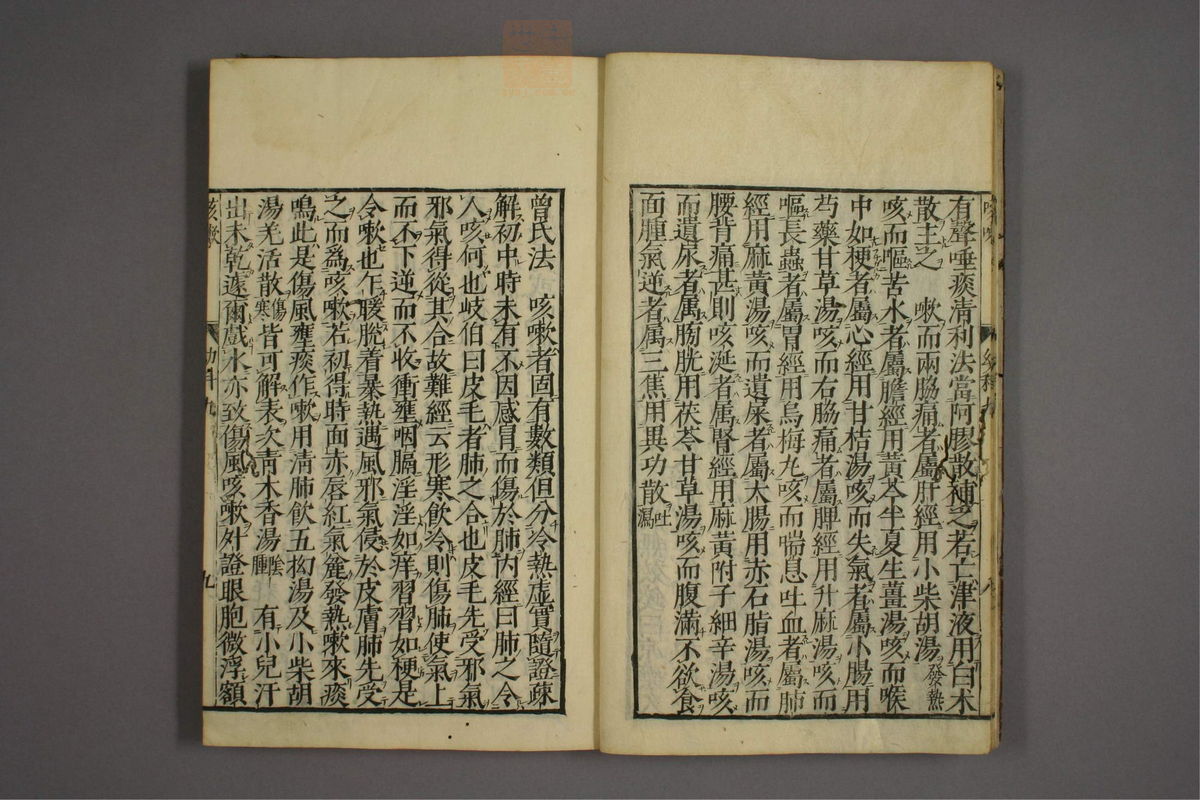 有聲唾痰清利法當阿膠散補之若亡津液用白朮
散主之　嗽而兩脇痛者屬肝經用小柴胡湯發熱
咳而嘔苦水者屬膽經用黃芩半夏生薑湯咳而喉
中如梗者屬心經用甘桔湯咳而失氣者屬小腸用
芍藥甘草湯咳而右脇痛者屬脾經用升麻湯咳而
嘔長蟲者屬胃經用烏梅丸咳而喘息吐血者屬肺
經用麻黃湯咳而遺屎者屬大腸用赤石脂湯咳而
腰背痛甚則咳涎者属腎經用麻黃附子細辛湯咳
而遺尿者属膀胱用茯苓甘草湯咳而腹滿不欲食
面腫氣逆者属三焦用異功散吐瀉
曾氏法　咳嗽者固有數類但分冷熱虛實隨證疎
解初中時未有不因感冒而傷於肺內經曰肺之令
人咳何也岐伯曰皮毛者肺之合也皮毛先受邪氣
邪氣得從其合故難經云形寒飲冷則傷肺使氣上
而不下逆而不收衝壅咽膈淫淫如痒習習如梗是
令嗽也乍暖脫着暴熱遇風邪氣侵於皮膚肺先受
之而爲咳嗽若初得時面赤唇紅氣麄發熱嗽來痰
鳴此是傷風壅痰作嗽用清肺飲五拗湯及小柴胡
湯羌活散傷寒皆可解表次青木香湯陰腫　有小兒汗
出未乾遽爾戲水亦致傷風咳嗽外證眼胞微浮額
咳嗽
幼科九
九